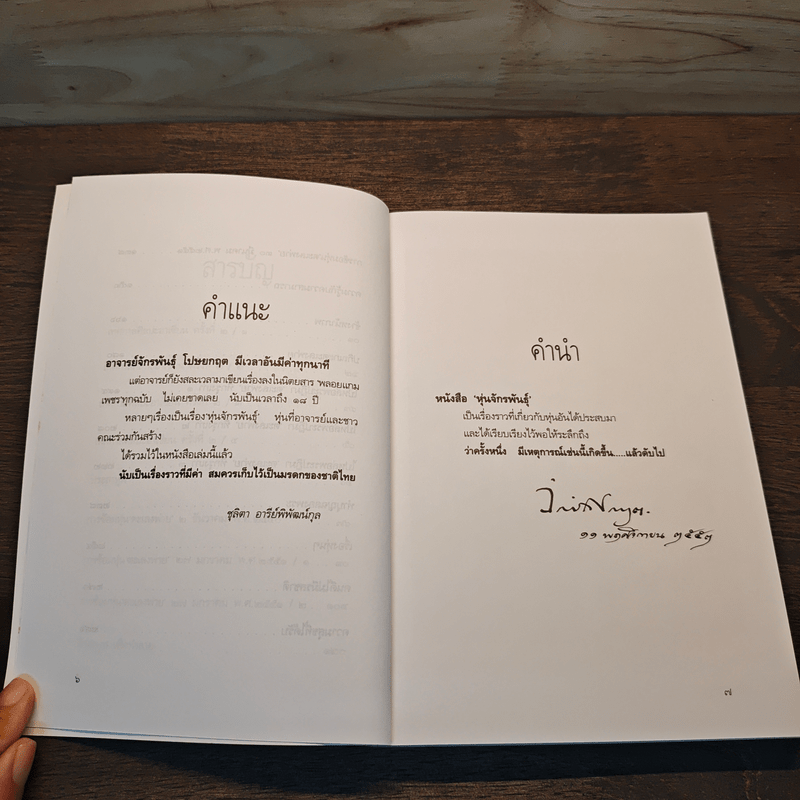 คำแนะ
อาจารย์จักรพันธุ์ โปษยกฤต มีเวลาอันมีค่าทุกนาที
แต่อาจารย์ก็ยังสละเวลามาเขียนเรื่องลงในนิตยสาร พลอยแกม
เพชรทุกฉบับ ไม่เคยขาดเลย นับเป็นเวลาถึง ๑๘ ปี
หลายๆเรื่องเป็นเรื่อง'หุ่นจักรพันธุ์' หุ่นที่อาจารย์และชาว
คณะร่วมกันสร้าง
ได้รวมไว้ในหนังสือเล่มนี้แล้ว
นับเป็นเรื่องราวที่มีค่า สมควรเก็บไว้เป็นมรดกของชาติไทย
ชุลิตา อารีย์พิพัฒน์กุล
๖
คำนำ
หนังสือ 'หุ่นจักรพันธุ์'
เป็นเรื่องราวที่เกี่ยวกับหุ่นอันได้ประสบมา
และได้เรียบเรียงไว้พอให้ระลึกถึง
ว่าครั้งหนึ่ง มีเหตุการณ์เช่นนี้เกิดขึ้น.....แล้วดับไป
๑๑ พฤศจิกายน
๗